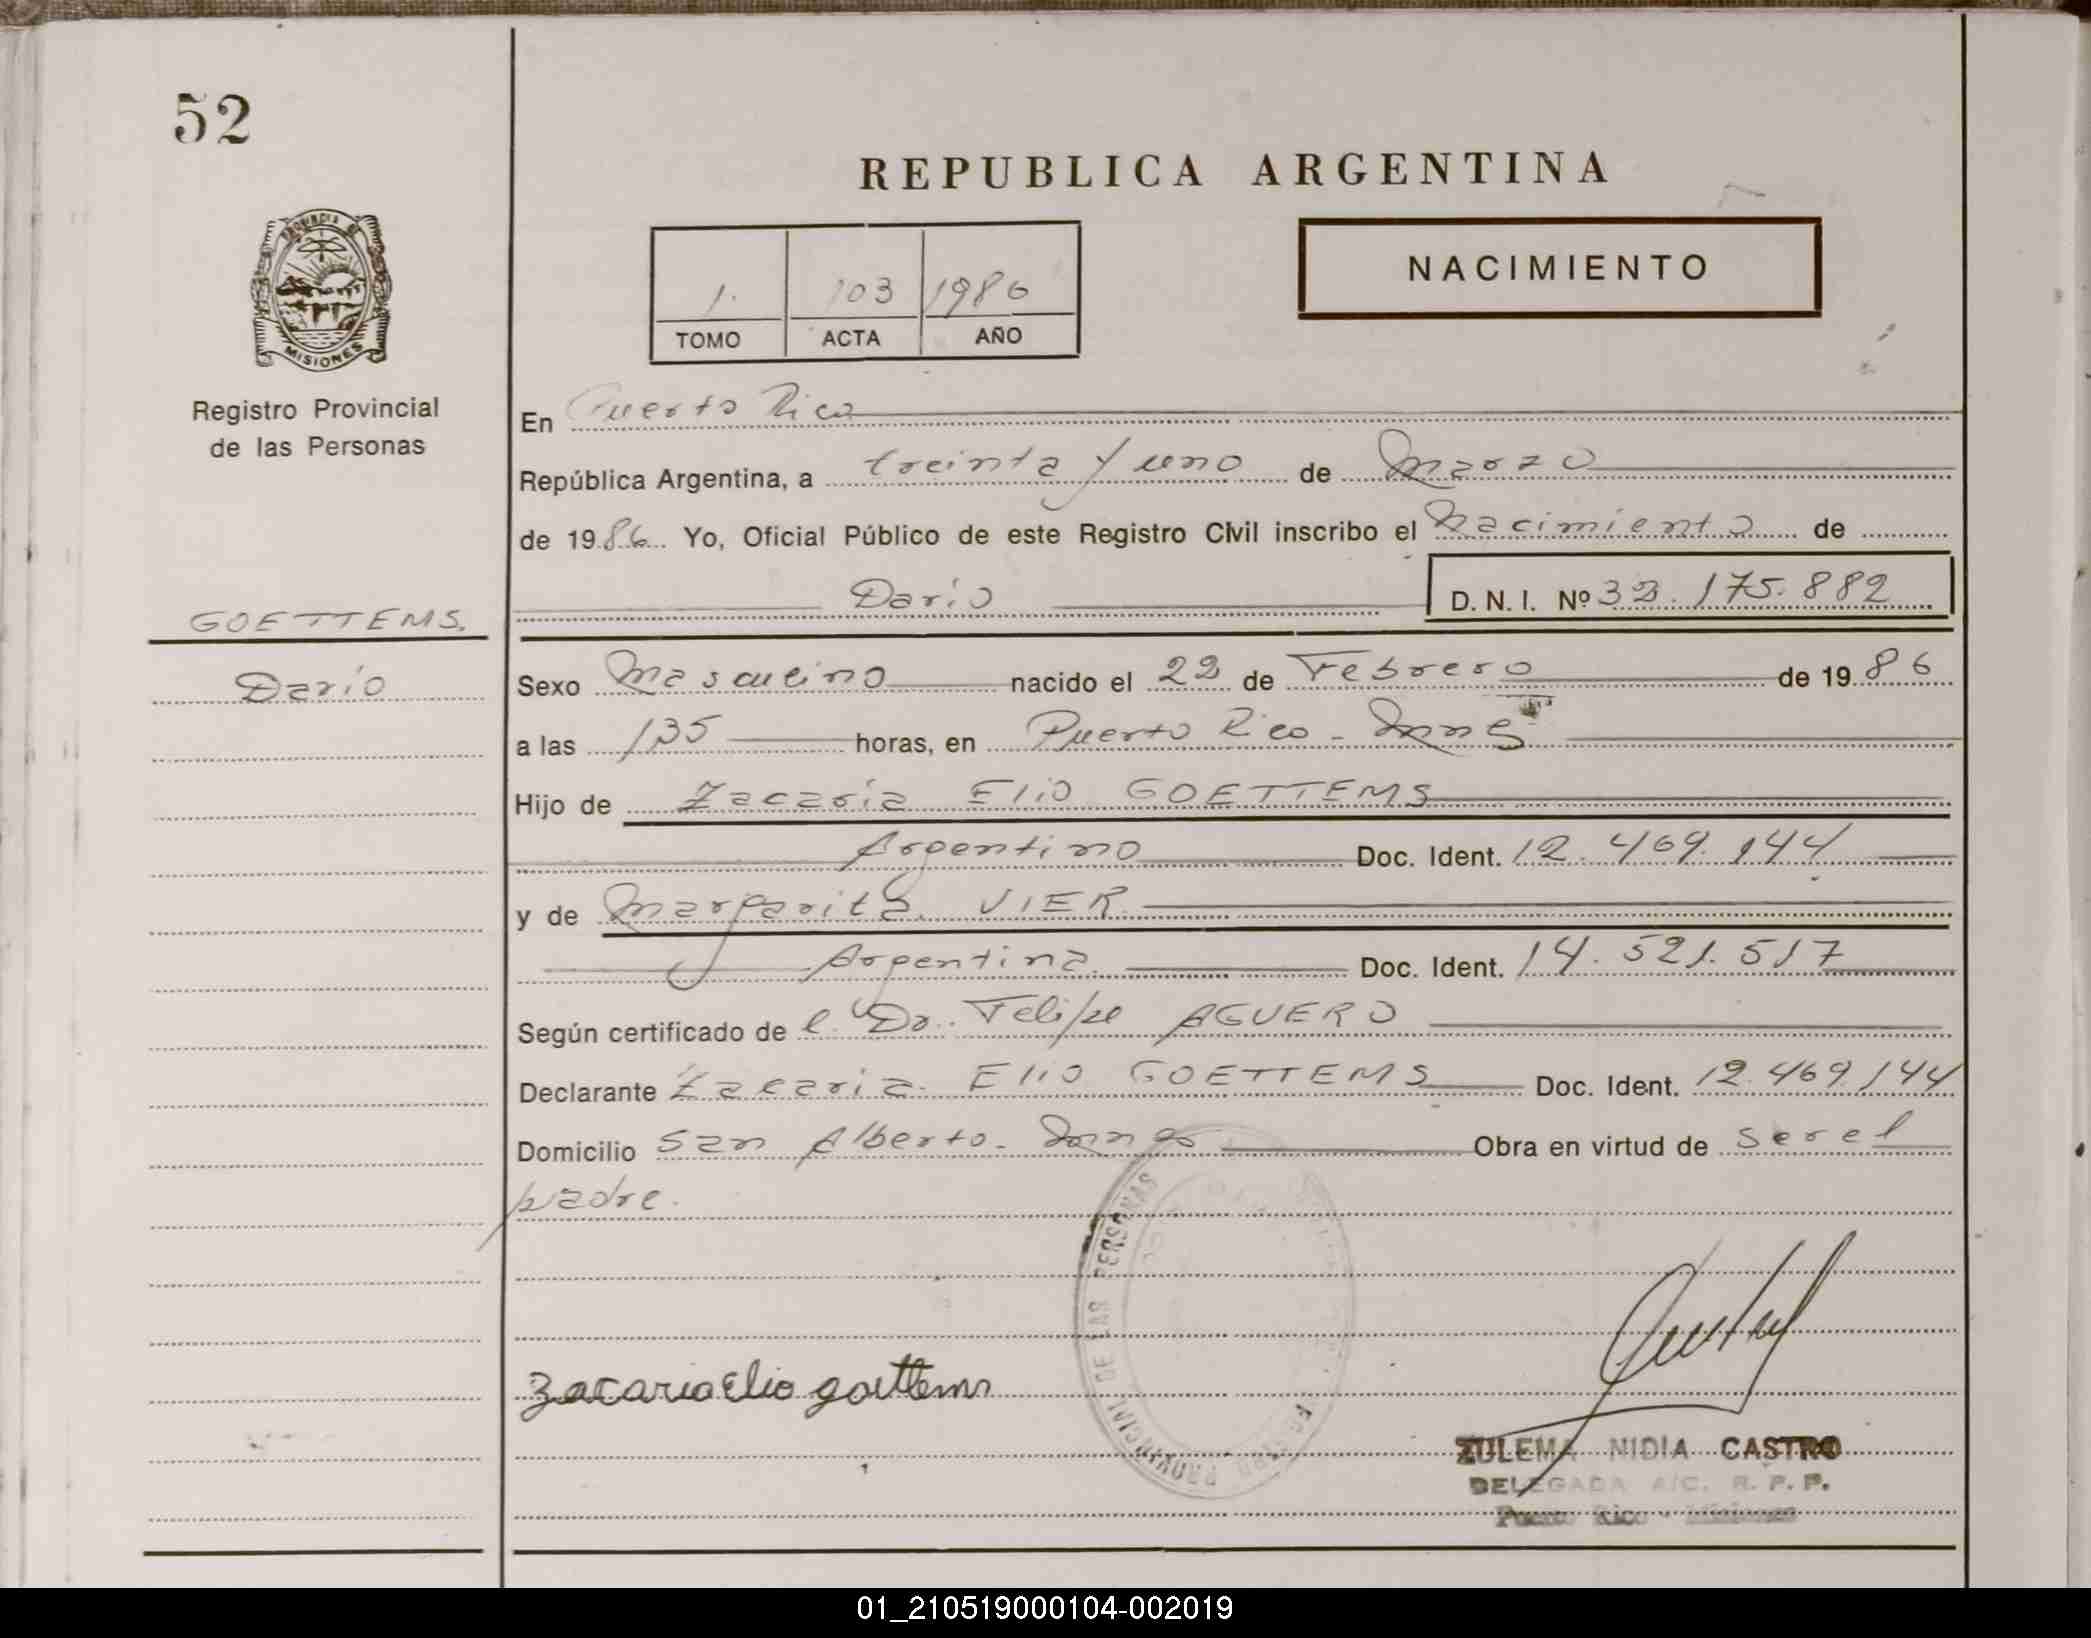 52
REPUBLICA ARGENTINA
PROVINCIA DE
MISIONES
Registro Provincial
de las Personas
NACIMIENTO
1. 103 1986
TOMO ACTA AÑO
En Puerto Rico
República Argentina, a treinta y uno de Marzo
de 1986. Yo, Oficial Público de este Registro Civil inscribo el Nacimiento de
Darío D. N. I. Nº 32.175.882
GOETTEMS.
Darío
Sexo Masculino nacido el 22 de Febrero de 1986
a las 135 horas, en Puerto Rico - Mnes
Hijo de Zacaría Elio GOETTEMS
Argentino Doc. Ident. 12.469.144
y de Margarita VIER
Argentina Doc. Ident. 14.521.517
Según certificado de l Dr. Felipe AGUERO
Declarante Zacaria Elio GOETTEMS Doc. Ident. 12.469.144
Domicilio San Alberto - Mnes Obra en virtud de ser el
padre.
PROVINCIAL DE LAS PERSONAS
zacaria Elio goettems
ZULEMA NIDIA CASTRO
DELEGADA A/C. R. P. P.
Puerto Rico - Misiones
01_210519000104-002019